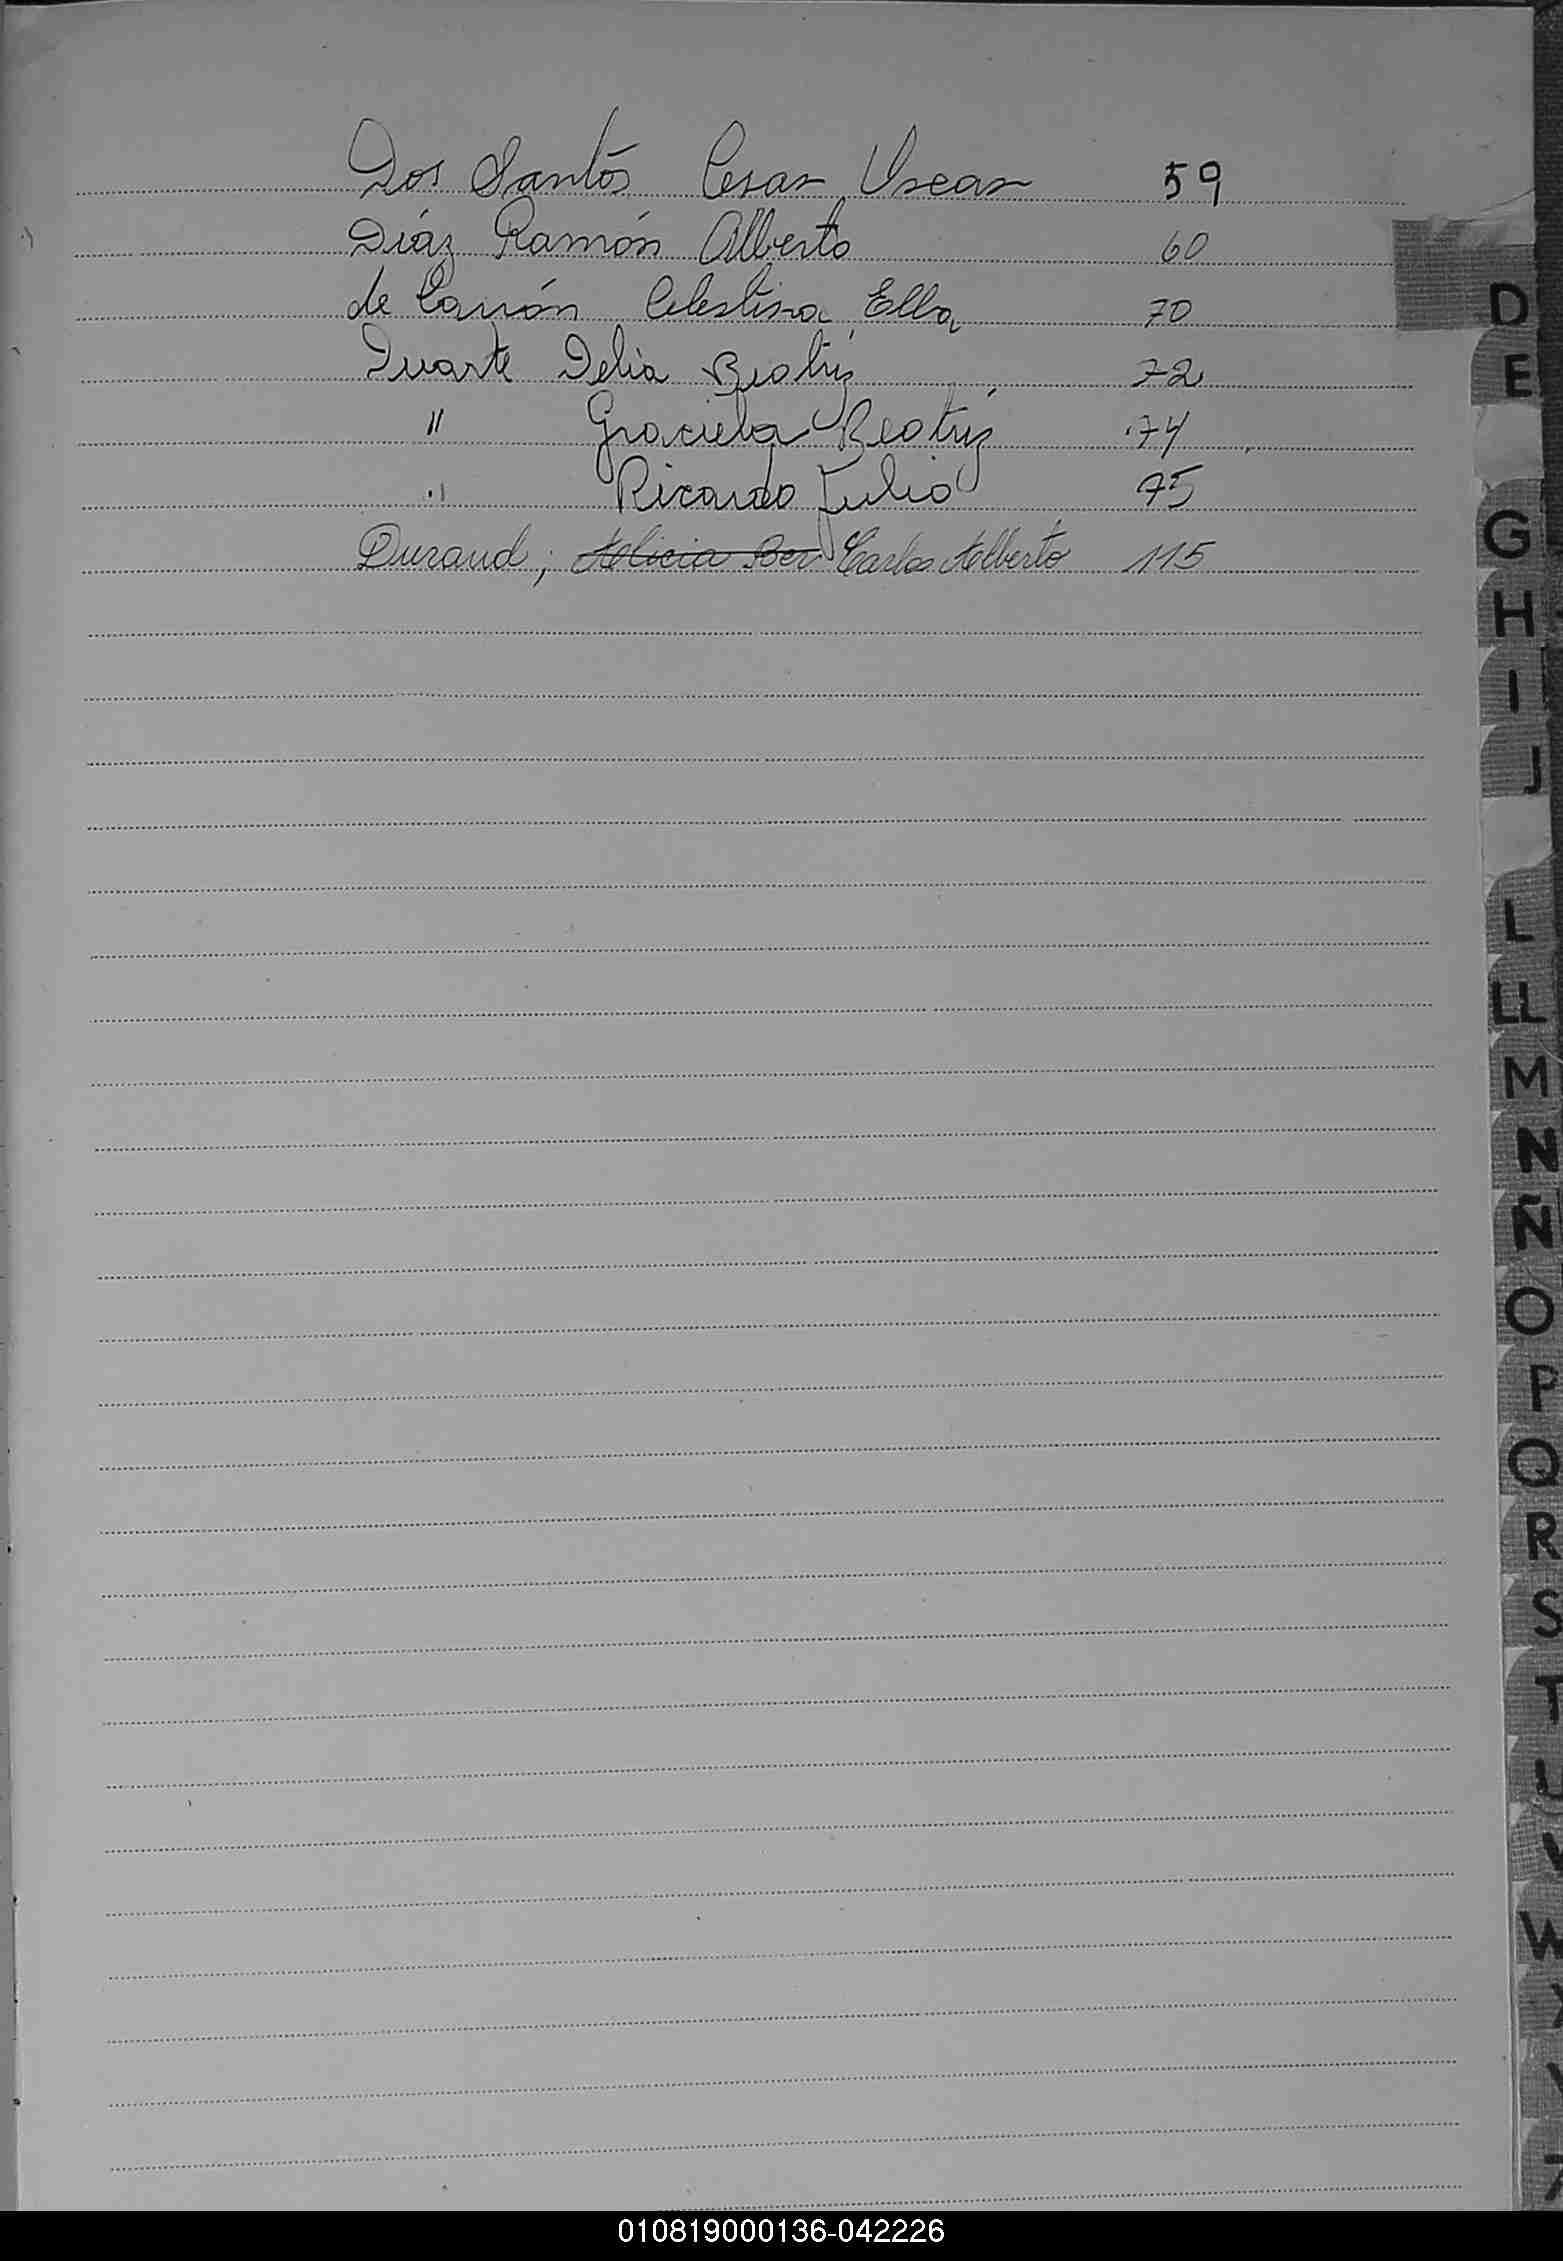 Dos Santos Cesar Oscar 59
Díaz Ramón Alberto 60
de Carrón Celestina Elba 70
Duarte Delia Beatriz 72
" Graciela Beatriz 74
" Ricardo Julio 75
Durand; Alicia Ber Carlos Alberto 115
D
E
G
H
I
J
L
LL
M
N
Ñ
O
P
Q
R
S
T
W
010819000136-042226